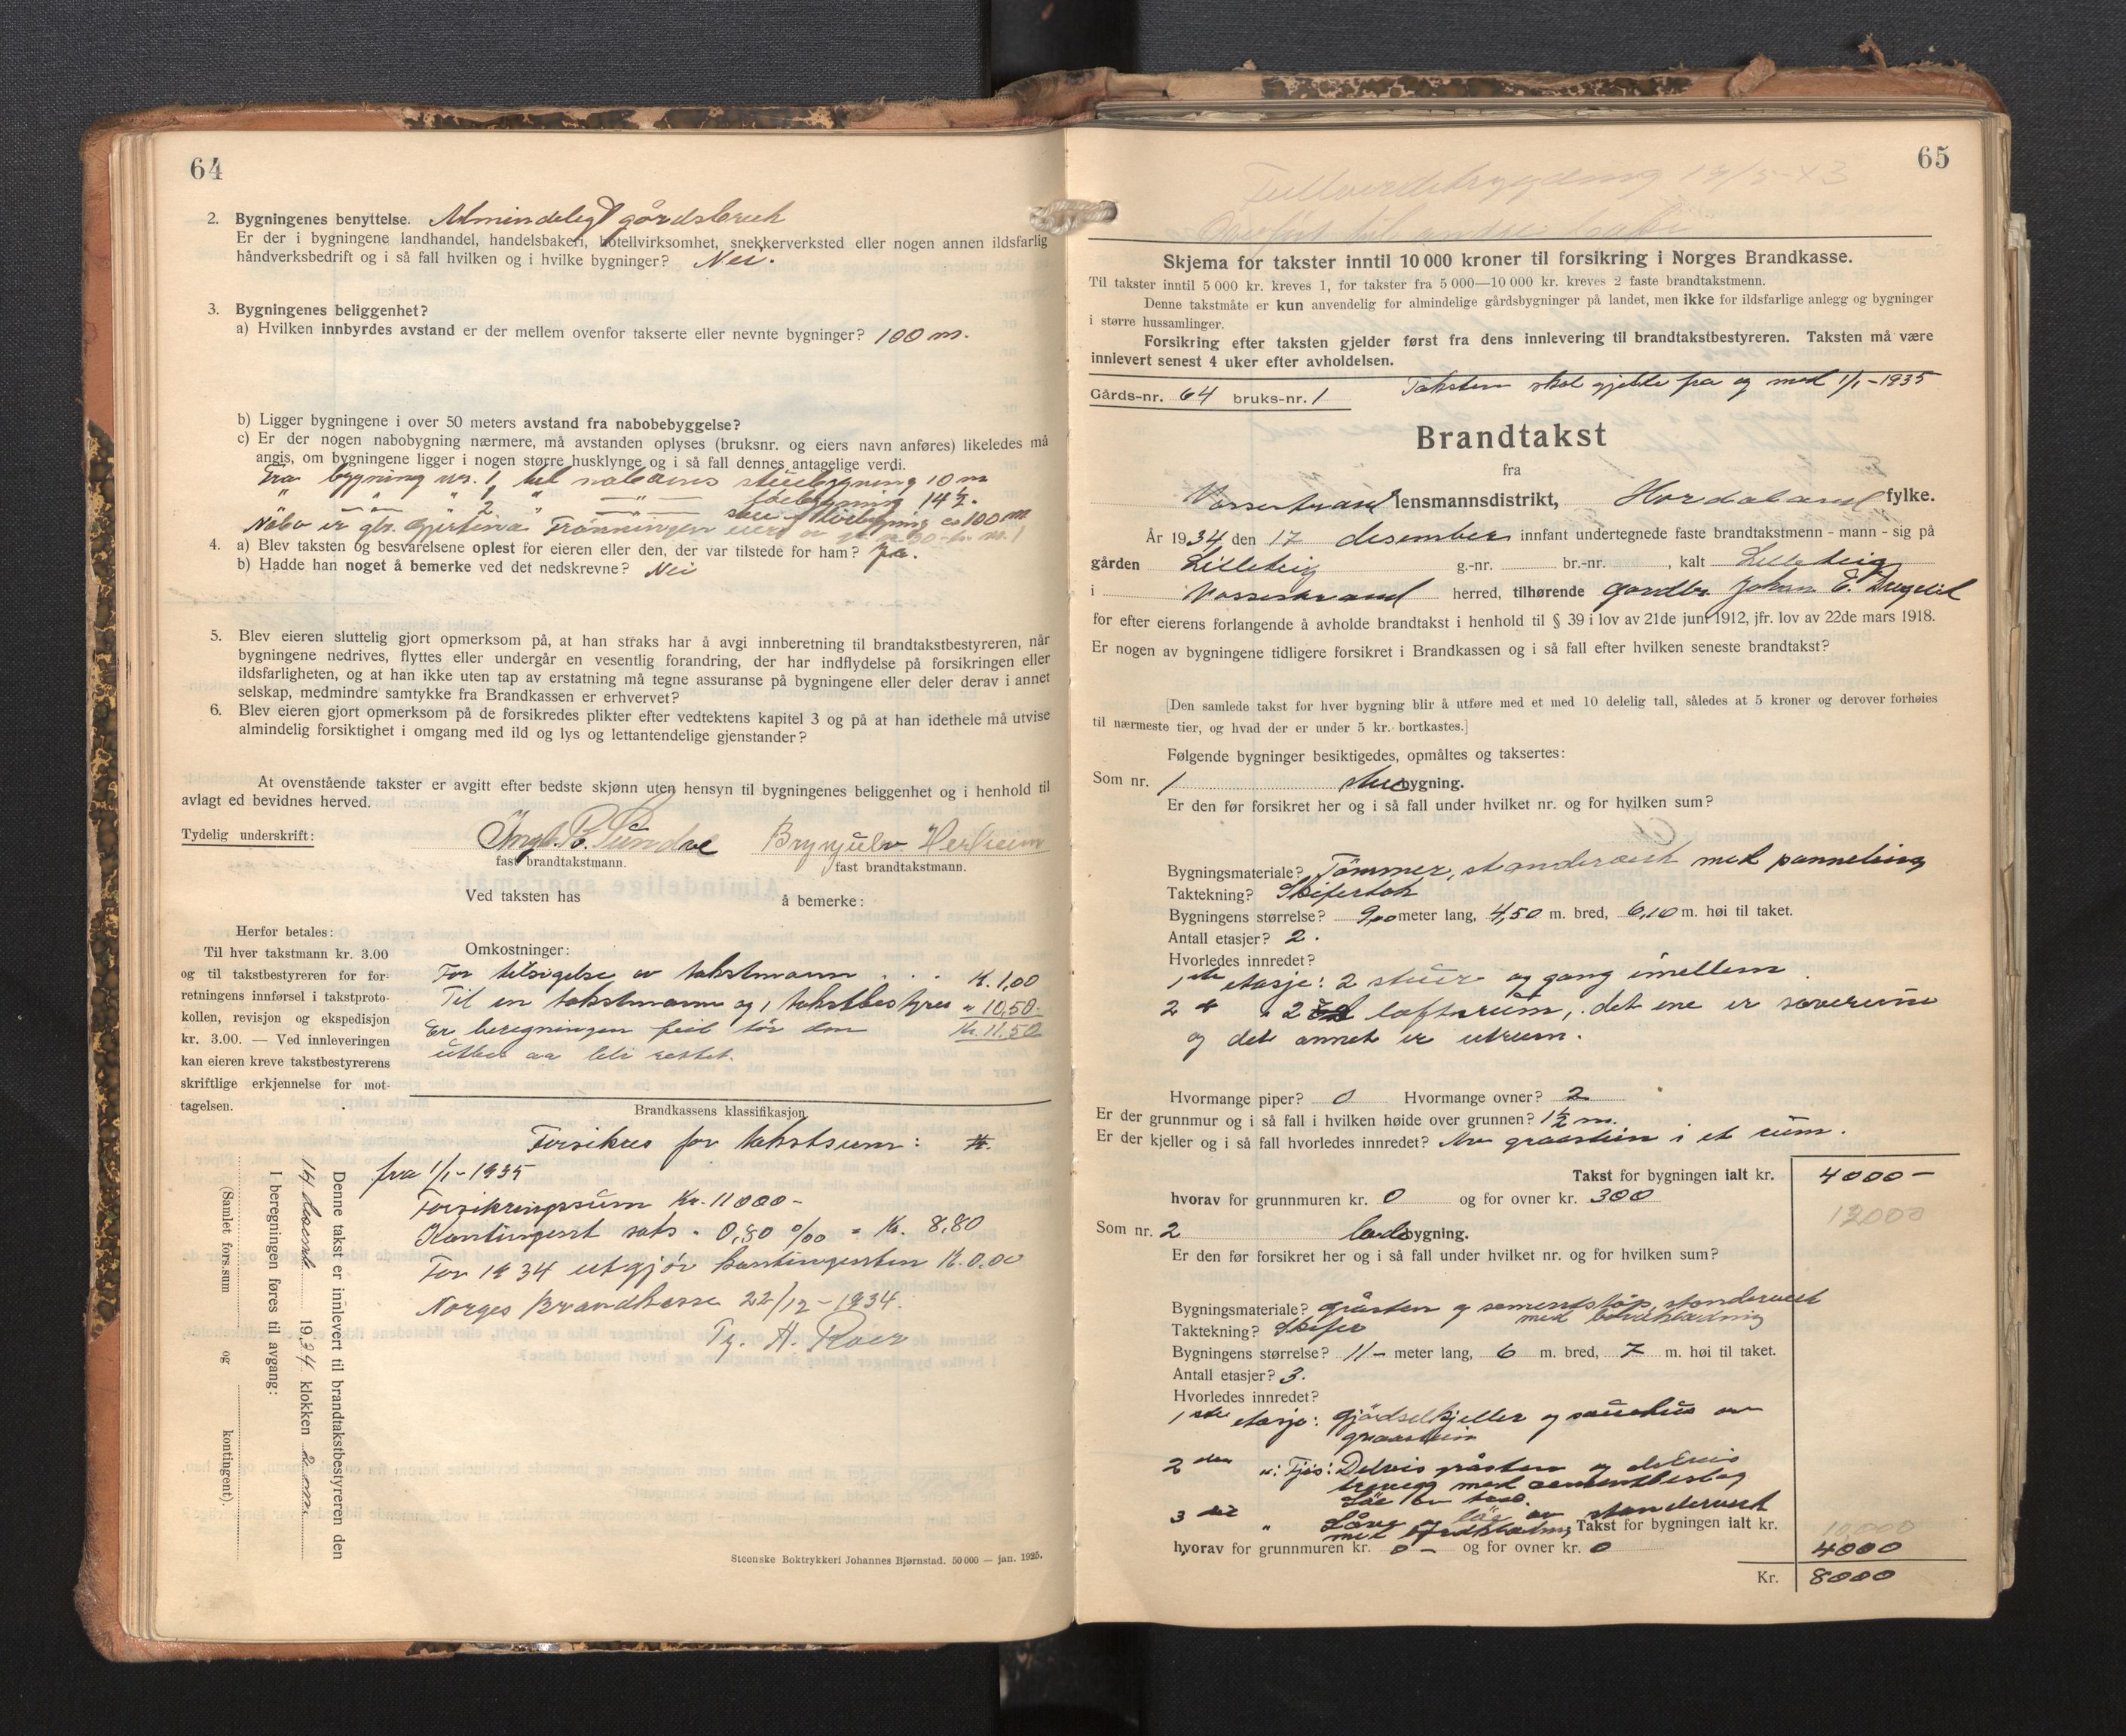 64
2. Bygningenes benyttelse. Almindeligt gårdsbruk
Er der i bygningene landhandel, handelsbakeri, hotellvirksomhet, snekkerverksted eller nogen annen ildsfarlig
håndverksbedrift og i så fall hvilken og i hvilke bygninger? Nei.
3. Bygningenes beliggenhet?
a) Hvilken innbyrdes avstand er der mellem ovenfor takserte eller nevnte bygninger? 100 m.
b) Ligger bygningene i over 50 meters avstand fra nabobebyggelse?
c) Er der nogen nabobygning nærmere, må avstanden oplyses (bruksnr. og eiers navn anføres) likeledes må
angis, om bygningene ligger i nogen større husklynge og i så fall dennes antagelige verdi.
Fra bygning nr. 1 til naboens stuebygning 10 m
" " " 1 " — " — løebygning 14½.
" " " 2 " — " — løebygning ca 100 m
Nabo er gbr. Gjertina Trønningen
4. a) Blev taksten og besvarelsene oplest for eieren eller den, der var tilstede for ham? Ja.
b) Hadde han noget å bemerke ved det nedskrevne? Nei
5. Blev eieren sluttelig gjort opmerksom på, at han straks har å avgi innberetning til brandtakstbestyreren, når
bygningene nedrives, flyttes eller undergår en vesentlig forandring, der har indflydelse på forsikringen eller
ildsfarligheten, og at han ikke uten tap av erstatning må tegne assuranse på bygningene eller deler derav i annet
selskap, medmindre samtykke fra Brandkassen er erhvervet?
6. Blev eieren gjort opmerksom på de forsikredes plikter efter vedtektens kapitel 3 og på at han idethele må utvise
almindelig forsiktighet i omgang med ild og lys og lettantendelige gjenstander?
At ovenstående takster er avgitt efter bedste skjønn uten hensyn til bygningenes beliggenhet og i henhold til
avlagt ed bevidnes herved.
Tydelig underskrift: Ingb. B. Sundve Brynjulv Herheim
fast brandtakstmann. fast brandtakstmann.
Ved taksten has å bemerke:
Herfor betales:
Til hver takstmann kr. 3.00
og til takstbestyreren for for-
retningens innførsel i takstproto-
kollen, revisjon og ekspedisjon
kr. 3.00. — Ved innleveringen
kan eieren kreve takstbestyrerens
skriftlige erkjennelse for mot-
tagelsen.
Omkostninger:
For tilsigelse av takstmann . . . K. 1,00
Til en takstmann og 1 takstbestyrer " 10,50.
Er beregningen feil bør den Kr. 11.50
Brandkassens klassifikasjon
Forsikres for takstsum:
fra 1/1-1935
Forsikringssum Kr. 11000-
Kontingent sats. 0,80 ‰ = Kr. 8,80
For 1934 utgjør kontingenten K. 0.00
Norges Brandkasse 22/12-1934.
Denne takst er innlevert til brandtakstbestyreren den
14 desemb. 1934 klokken 2
I beregningen føres til avgang:
(Samlet fors.sum og kontingent).
Steenske Boktrykkeri Johannes Bjørnstad. 50 000 — jan. 1925.
65
Fullverdibygding 19/5-43
Overført til andre boki
Skjema for takster inntil 10 000 kroner til forsikring i Norges Brandkasse.
Til takster inntil 5 000 kr. kreves 1, for takster fra 5 000—10 000 kr. kreves 2 faste brandtakstmenn.
Denne takstmåte er kun anvendelig for almindelige gårdsbygninger på landet, men ikke for ildsfarlige anlegg og bygninger
i større hussamlinger.
Forsikring efter taksten gjelder først fra dens innlevering til brandtakstbestyreren. Taksten må være
innlevert senest 4 uker efter avholdelsen.
Gårds-nr. 64 bruks-nr. 1 Taksten skal gjelde fra og med 1/1-1935
Brandtakst
fra
Vossestrand lensmannsdistrikt, Hordaland fylke.
År 1934 den 17 desember innfant undertegnede faste brandtakstmenn - mann - sig på
gården Lilleteig g.-nr. br.-nr. , kalt Lilleteig
i Vossestrand herred, tilhørende gardbr. Johan E. Drageid
for efter eierens forlangende å avholde brandtakst i henhold til § 39 i lov av 21de juni 1912, jfr. lov av 22de mars 1918.
Er nogen av bygningene tidligere forsikret i Brandkassen og i så fall efter hvilken seneste brandtakst?
[Den samlede takst for hver bygning blir å utføre med et med 10 delelig tall, således at 5 kroner og derover forhøies
til nærmeste tier, og hvad der er under 5 kr. bortkastes.]
Følgende bygninger besiktigedes, opmåltes og taksertes:
Som nr. 1 stuebygning.
Er den før forsikret her og i så fall under hvilket nr. og for hvilken sum?
Bygningsmateriale? Tømmer, standerverk med panneling
Taktekning? Skifertak
Bygningens størrelse? 9,00 meter lang, 4,50 m. bred, 6,10 m. høi til taket.
Antall etasjer? 2.
Hvorledes innredet?
1ste etasje: 2 stuer og gang imellem
2 " " 2 loftsrum, det ene er soverum
og det annet er utrum.
Hvormange piper? 0 Hvormange ovner? 2
Er der grunnmur og i så fall i hvilken høide over grunnen? 1½ m.
Er der kjeller og i så fall hvorledes innredet? Av graastein i et rum.
Takst for bygningen ialt kr. 4000-
hvorav for grunnmuren kr. 0 og for ovner kr. 300
12000
Som nr. 2 løebygning.
Er den før forsikret her og i så fall under hvilket nr. og for hvilken sum?
Bygningsmateriale? gråsten og sementstøp, standerverk
med bordklædning
Taktekning? Skifer
Bygningens størrelse? 11- meter lang, 6 m. bred, 7 m. høi til taket.
Antall etasjer? 3.
Hvorledes innredet?
1ste etasje: gjødselkjeller og sauehus av
graastein
2den ": Fjøs: Delvis gråsten og delvis
trevegg med sementbeslag
Løe av
3die " Låve og løe av standerverk
med bordklædning Takst for bygningen ialt kr. 10,000
hvorav for grunnmuren kr. 0 - og for ovner kr. 0 4000
Kr. 8000